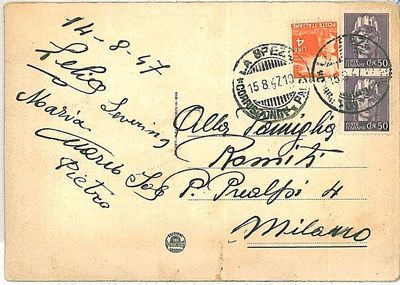 14-8-47
Lelio
Maria
Mario
Pietro
Alla Famiglia
Romiti
P. Prealpi 4
Milano
LA SPEZIA
15.8.47.10
CORRISPONDENZE
LIRE
4
POSTE ITALIANE
CENT. 50
CENT. 50